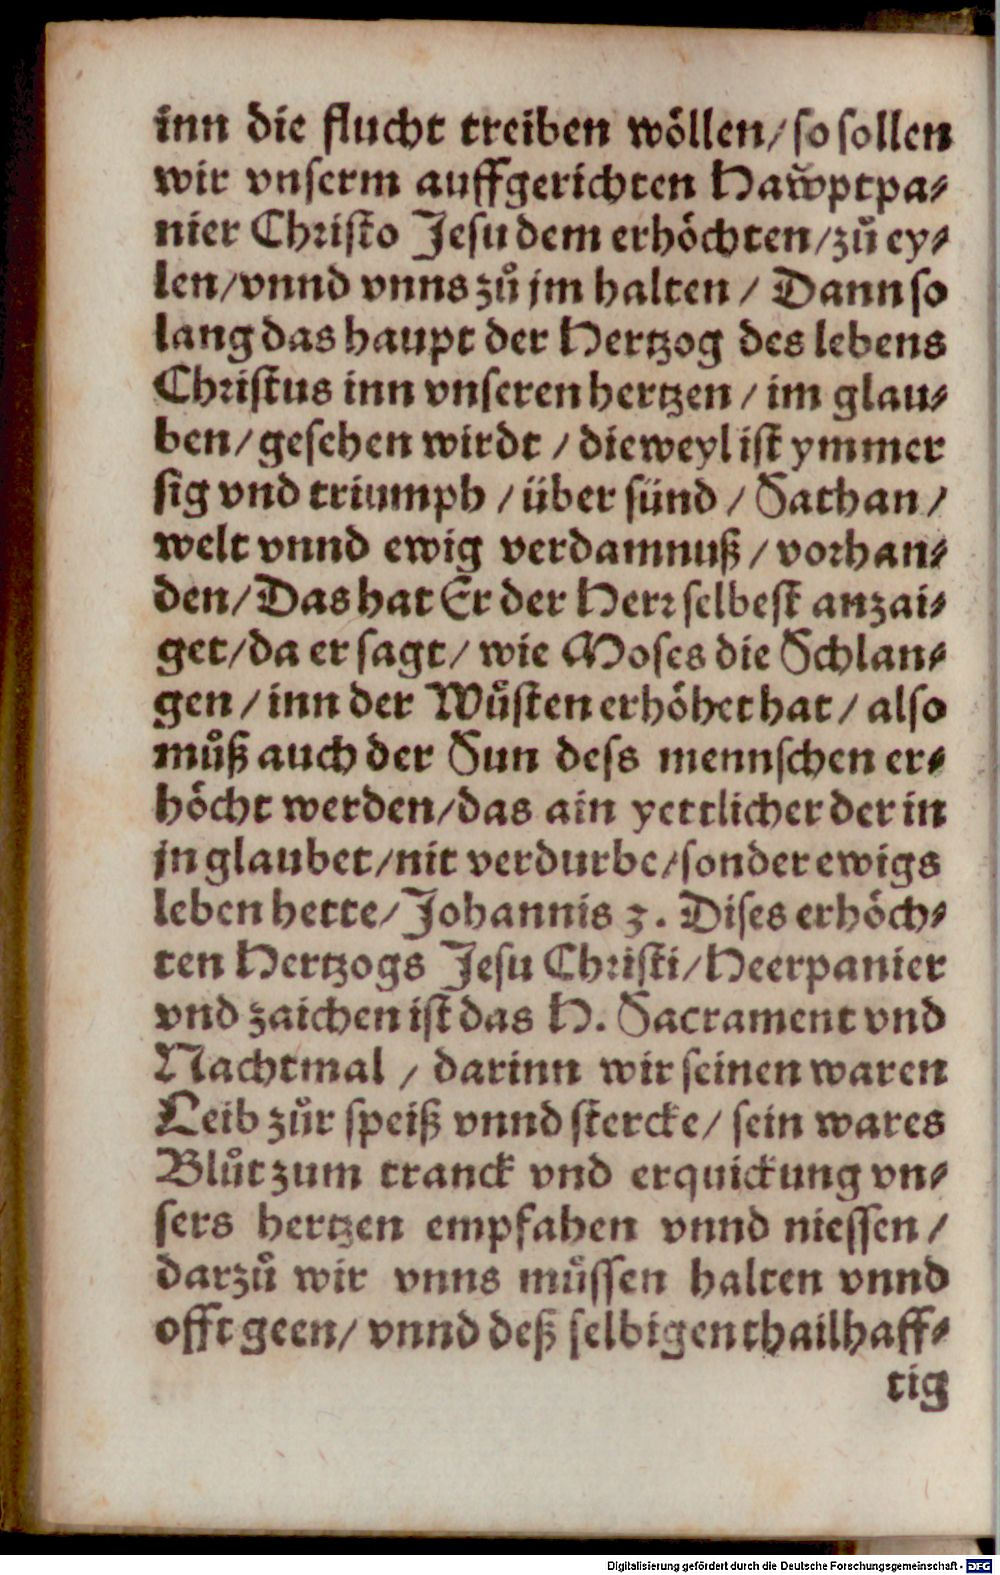 inn die flucht treiben wöllen/ so sollen
wir vnserm auffgerichten Haw̆ptpa⸗
nier Christo Jesu dem erhöchten/zů ey⸗
len/vnnd vnns zů jm halten / Dann so
lang das haupt der Hertzog des lebens
Christus inn vnseren hertzen / im glau⸗
ben/ gesehen wirdt / dieweyl ist ymmer
sig vnd triumph / über sünd / Sathan /
welt vnnd ewig verdamnuß / vorhan⸗
den/ Das hat Er der Herr selbest anzai⸗
get/da er sagt/ wie Moses die Schlan⸗
gen / inn der Wůsten erhöhet hat / also
můß auch der Sun dess mennschen er⸗
höcht werden/das ain yettlicher der in
jn glaubet/nit verdurbe/sonder ewigs
leben hette/ Johannis 3. Dises erhöch⸗
ten Hertzogs Jesu Christi/ Heerpanier
vnd zaichen ist das H. Sacrament vnd
Nachtmal / darinn wir seinen waren
Leib zůr speiß vnnd stercke/ sein wares
Blůt zum tranck vnd erquickung vn⸗
sers hertzen empfahen vnnd niessen /
darzů wir vnns můssen halten vnnd
offt geen/ vnnd deß selbigen thailhaff⸗
tig
Digitalisierung gefördert durch die Deutsche Forschungsgemeinschaft - DFG